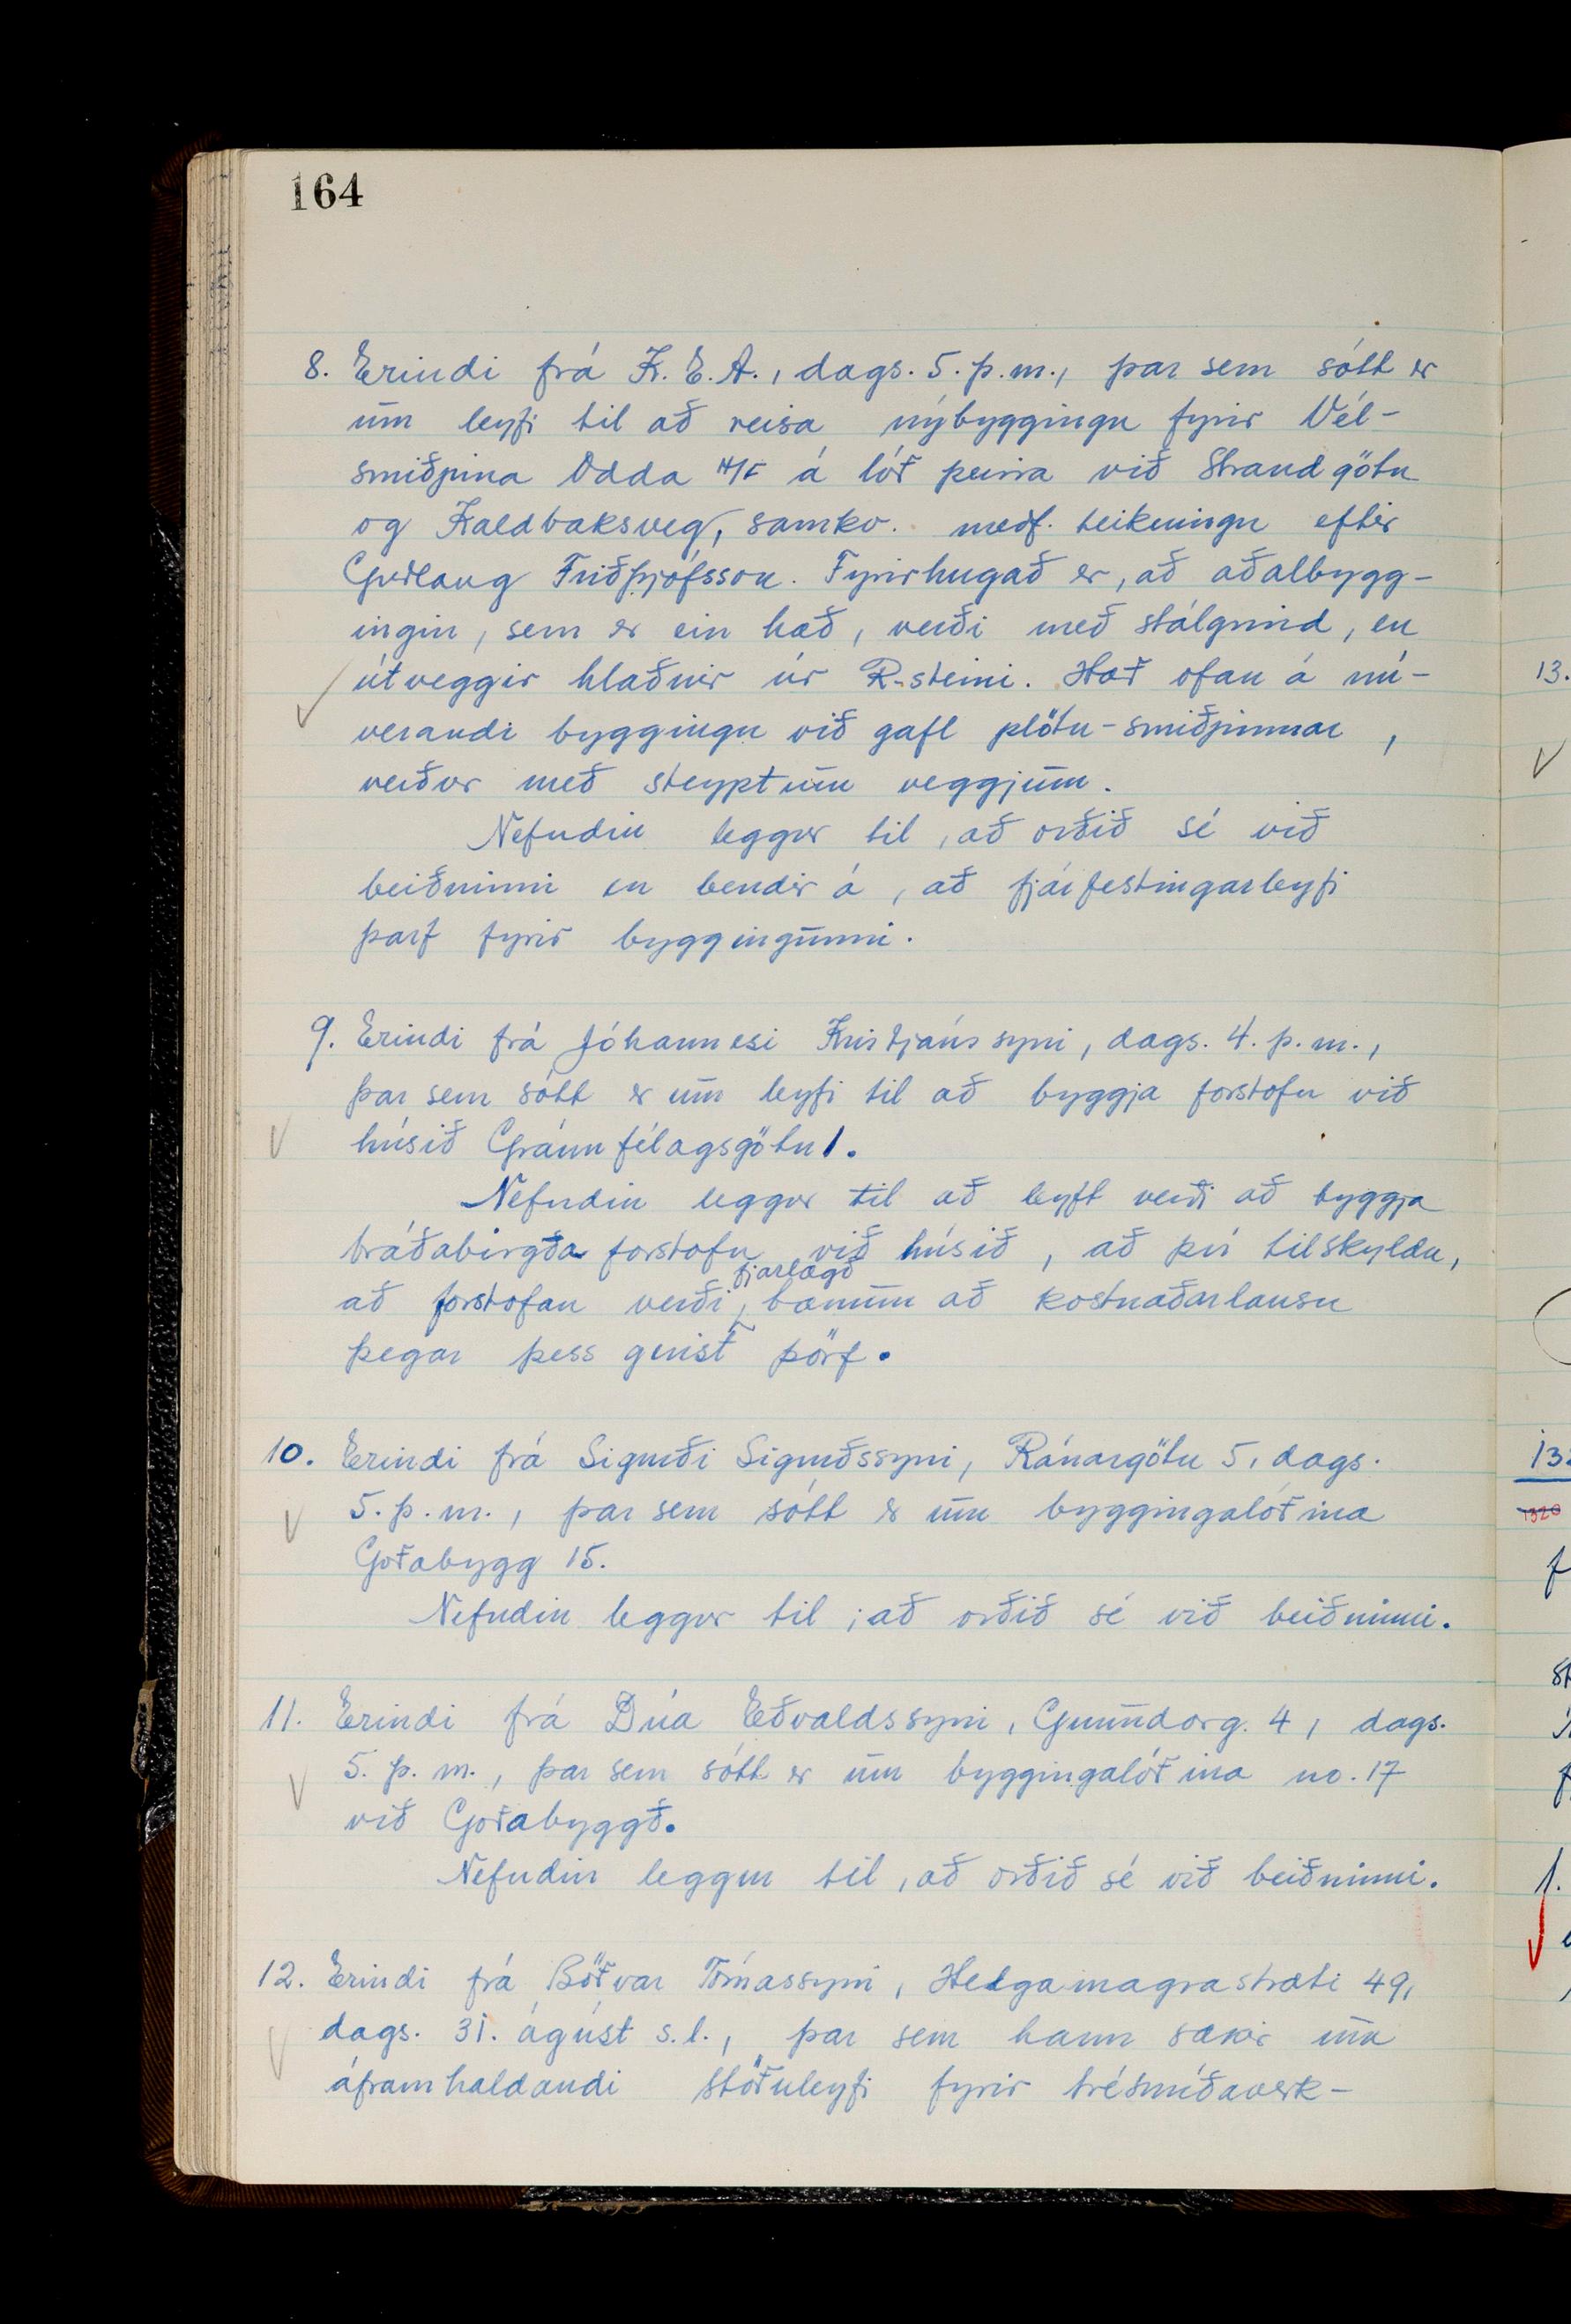 164
8. Erindi frá K.E.A., dags. 5. þ.m., þar sem sótt er
um leyfi til að reisa nýbyggingu fyrir Vél-
smiðjuna Odda H/F á lóð þeirra við Strandgötu
og Kaldbaksveg, samkv. meðf. teikningu eftir
Guðlaug Friðþjófsson. Fyrirhugað er, að aðalbygg-
ingin, sem er ein hæð, verði með stálgrind, en
útveggir hlaðnir úr R-steini. Hæð ofan á nú-
verandi byggingu við gafl plötu-smiðjunnar,
verður með steyptum veggjum.
Nefndin leggur til, að orðið sé við
beiðninni en bendir á, að fjárfestingarleyfi
þarf fyrir byggingunni.
9. Erindi frá Jóhannesi Kristjánssyni, dags. 4. þ.m.,
þar sem sótt er um leyfi til að byggja forstofu við
húsið Gránufélagsgötu 1.
Nefndin leggur til að leyft verði að byggja
bráðabirgða forstofu við húsið, að því tilskyldu,
að forstofan verði fjarlægð bænum að kostnaðarlausu
þegar þess gerist þörf.
10. Erindi frá Sigurði Sigurðssyni, Ránargötu 5, dags.
5. þ.m., þar sem sótt er um byggingalóðina
Goðabygg 15.
Nefndin leggur til, að orðið sé við beiðninni.
11. Erindi frá Dúa Eðvaldssyni, Gránudorg. 4, dags.
5. þ.m., þar sem sótt er um byggingalóðina no. 17
við Goðabyggð.
Nefndin leggur til, að orðið sé við beiðninni.
12. Erindi frá Böðvar Tómassyni, Helgamagrastræti 49,
dags. 31. ágúst s.l., þar sem hann sækir um
áframhaldandi stöðuleyfi fyrir trésmíðaverk-
13.
1.